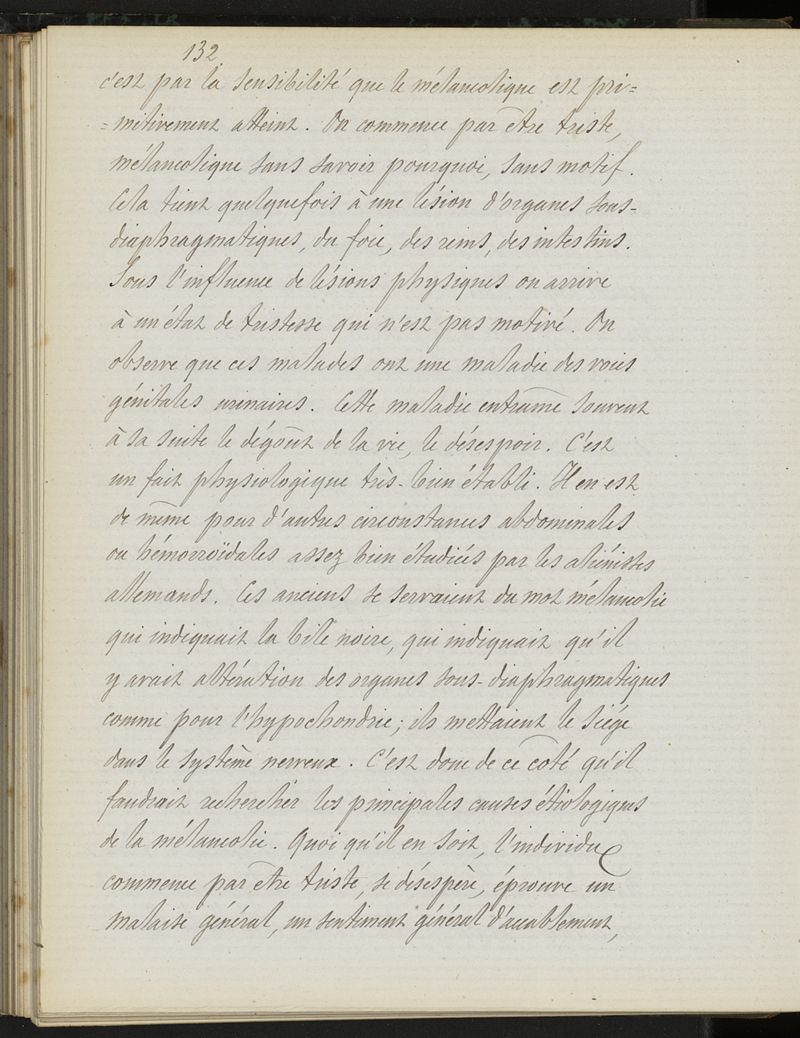 132
c'est par la sensibilité que le mélancolique est pri=
=mitivement atteint. On commence par être triste,
mélancolique sans savoir pourquoi, sans motif.
Cela tient quelquefois à une lésion d'organes sous-
diaphragmatiques, du foie, des reins, des intestins.
Sous l'influence de lésions physiques on arrive
à un état de tristesse qui n'est pas motivé. On
observe que ces malades ont une maladie des voies
génitales urinaires. Cette maladie entraîne souvent
à sa suite le dégoût de la vie, le désespoir. C'est
un fait physiologique très-bien établi. Il en est
de même pour d'autres circonstances abdominales
ou hémorroïdales assez bien étudiées par les aliénistes
allemands. Les anciens se servaient du mot mélancolie
qui indiquait la bile noire, qui indiquait qu'il
y avait altération des organes sous-diaphragmatiques
comme pour l'hypochondrie; ils mettaient le siége
dans le système nerveux. C'est donc de ce côté qu'il
faudrait rechercher les principales causes étiologiques
de la mélancolie. Quoi qu'il en soit, l'individu
commence par être triste, se désespère, éprouve un
malaise général, un sentiment général d'accablement,